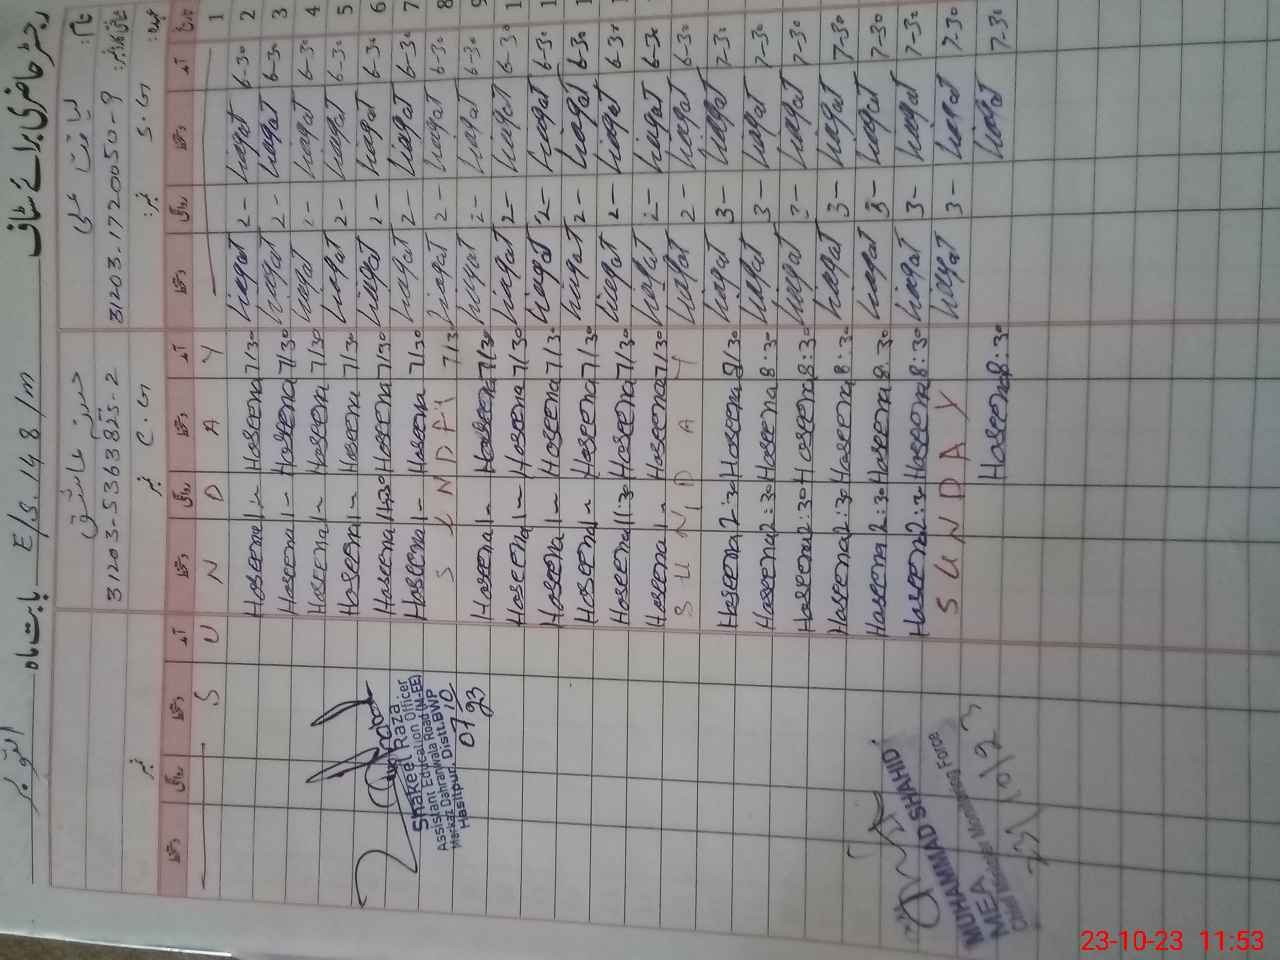 رجسٹر حاضری برائے سٹاف E/S. 148/m بابت ماہ اکتوبر
نام: لیاقت علی
31203-1720050-9
عہدہ: S.G نمبر:
31203-5363825-2
C.G نمبر
نمبر
تاریخ آمد دستخط روانگی دستخط آمد دستخط روانگی دستخط آمد دستخط روانگی دستخط
1 S U N D A Y
2 6-30 Liaqat 2- Liaqat 7/30 Haseena 1- Haseena
3 6-30 Liaqat 2- Liaqat 7/30 Haseena 1- Haseena
4 6-30 Liaqat 2- Liaqat 7/30 Haseena 1- Haseena
5 6-30 Liaqat 2- Liaqat 7/30 Haseena 1- Haseena
6 6-30 Liaqat 2- Liaqat 7/30 Haseena 11:30 Haseena
7 6-30 Liaqat 2- Liaqat 7/30 Haseena 1- Haseena
8 6-30 Liaqat 2- Liaqat 7/30 S U N D A Y
9 6-30 Liaqat 2- Liaqat 7/30 Haseena 1- Haseena
1 6-30 Liaqat 2- Liaqat 7/30 Haseena 1- Haseena
1 6-30 Liaqat 2- Liaqat 7/30 Haseena 1- Haseena
1 6-30 Liaqat 2- Liaqat 7/30 Haseena 1- Haseena
1 6-30 Liaqat 2- Liaqat 7/30 Haseena 11:30 Haseena
6-30 Liaqat 2- Liaqat 7/30 Haseena 1- Haseena
6-30 Liaqat 2- Liaqat S U N D A Y
7-30 Liaqat 3- Liaqat 8/30 Haseena 2:30 Haseena
7-30 Liaqat 3- Liaqat 8:30 Haseena 2:30 Haseena
7-30 Liaqat 3- Liaqat 8:30 Haseena 2:30 Haseena
7-30 Liaqat 3- Liaqat 8:30 Haseena 2:30 Haseena
7-30 Liaqat 3- Liaqat 8:30 Haseena 2:30 Haseena
7-30 Liaqat 3- Liaqat 8:30 Haseena 2:30 Haseena
7-30 Liaqat 3- Liaqat S U N D A Y
7-30 Liaqat 8:30 Haseena
Shakeel Raza
Assistant Education Officer
Markaz Dahranwala Road (M-EE)
Hasilpur, Distt. BWP
07-10
23
MUHAMMAD SHAHID
MEA
Chief Minister Monitoring Force
23/10/23
23-10-23 11:53